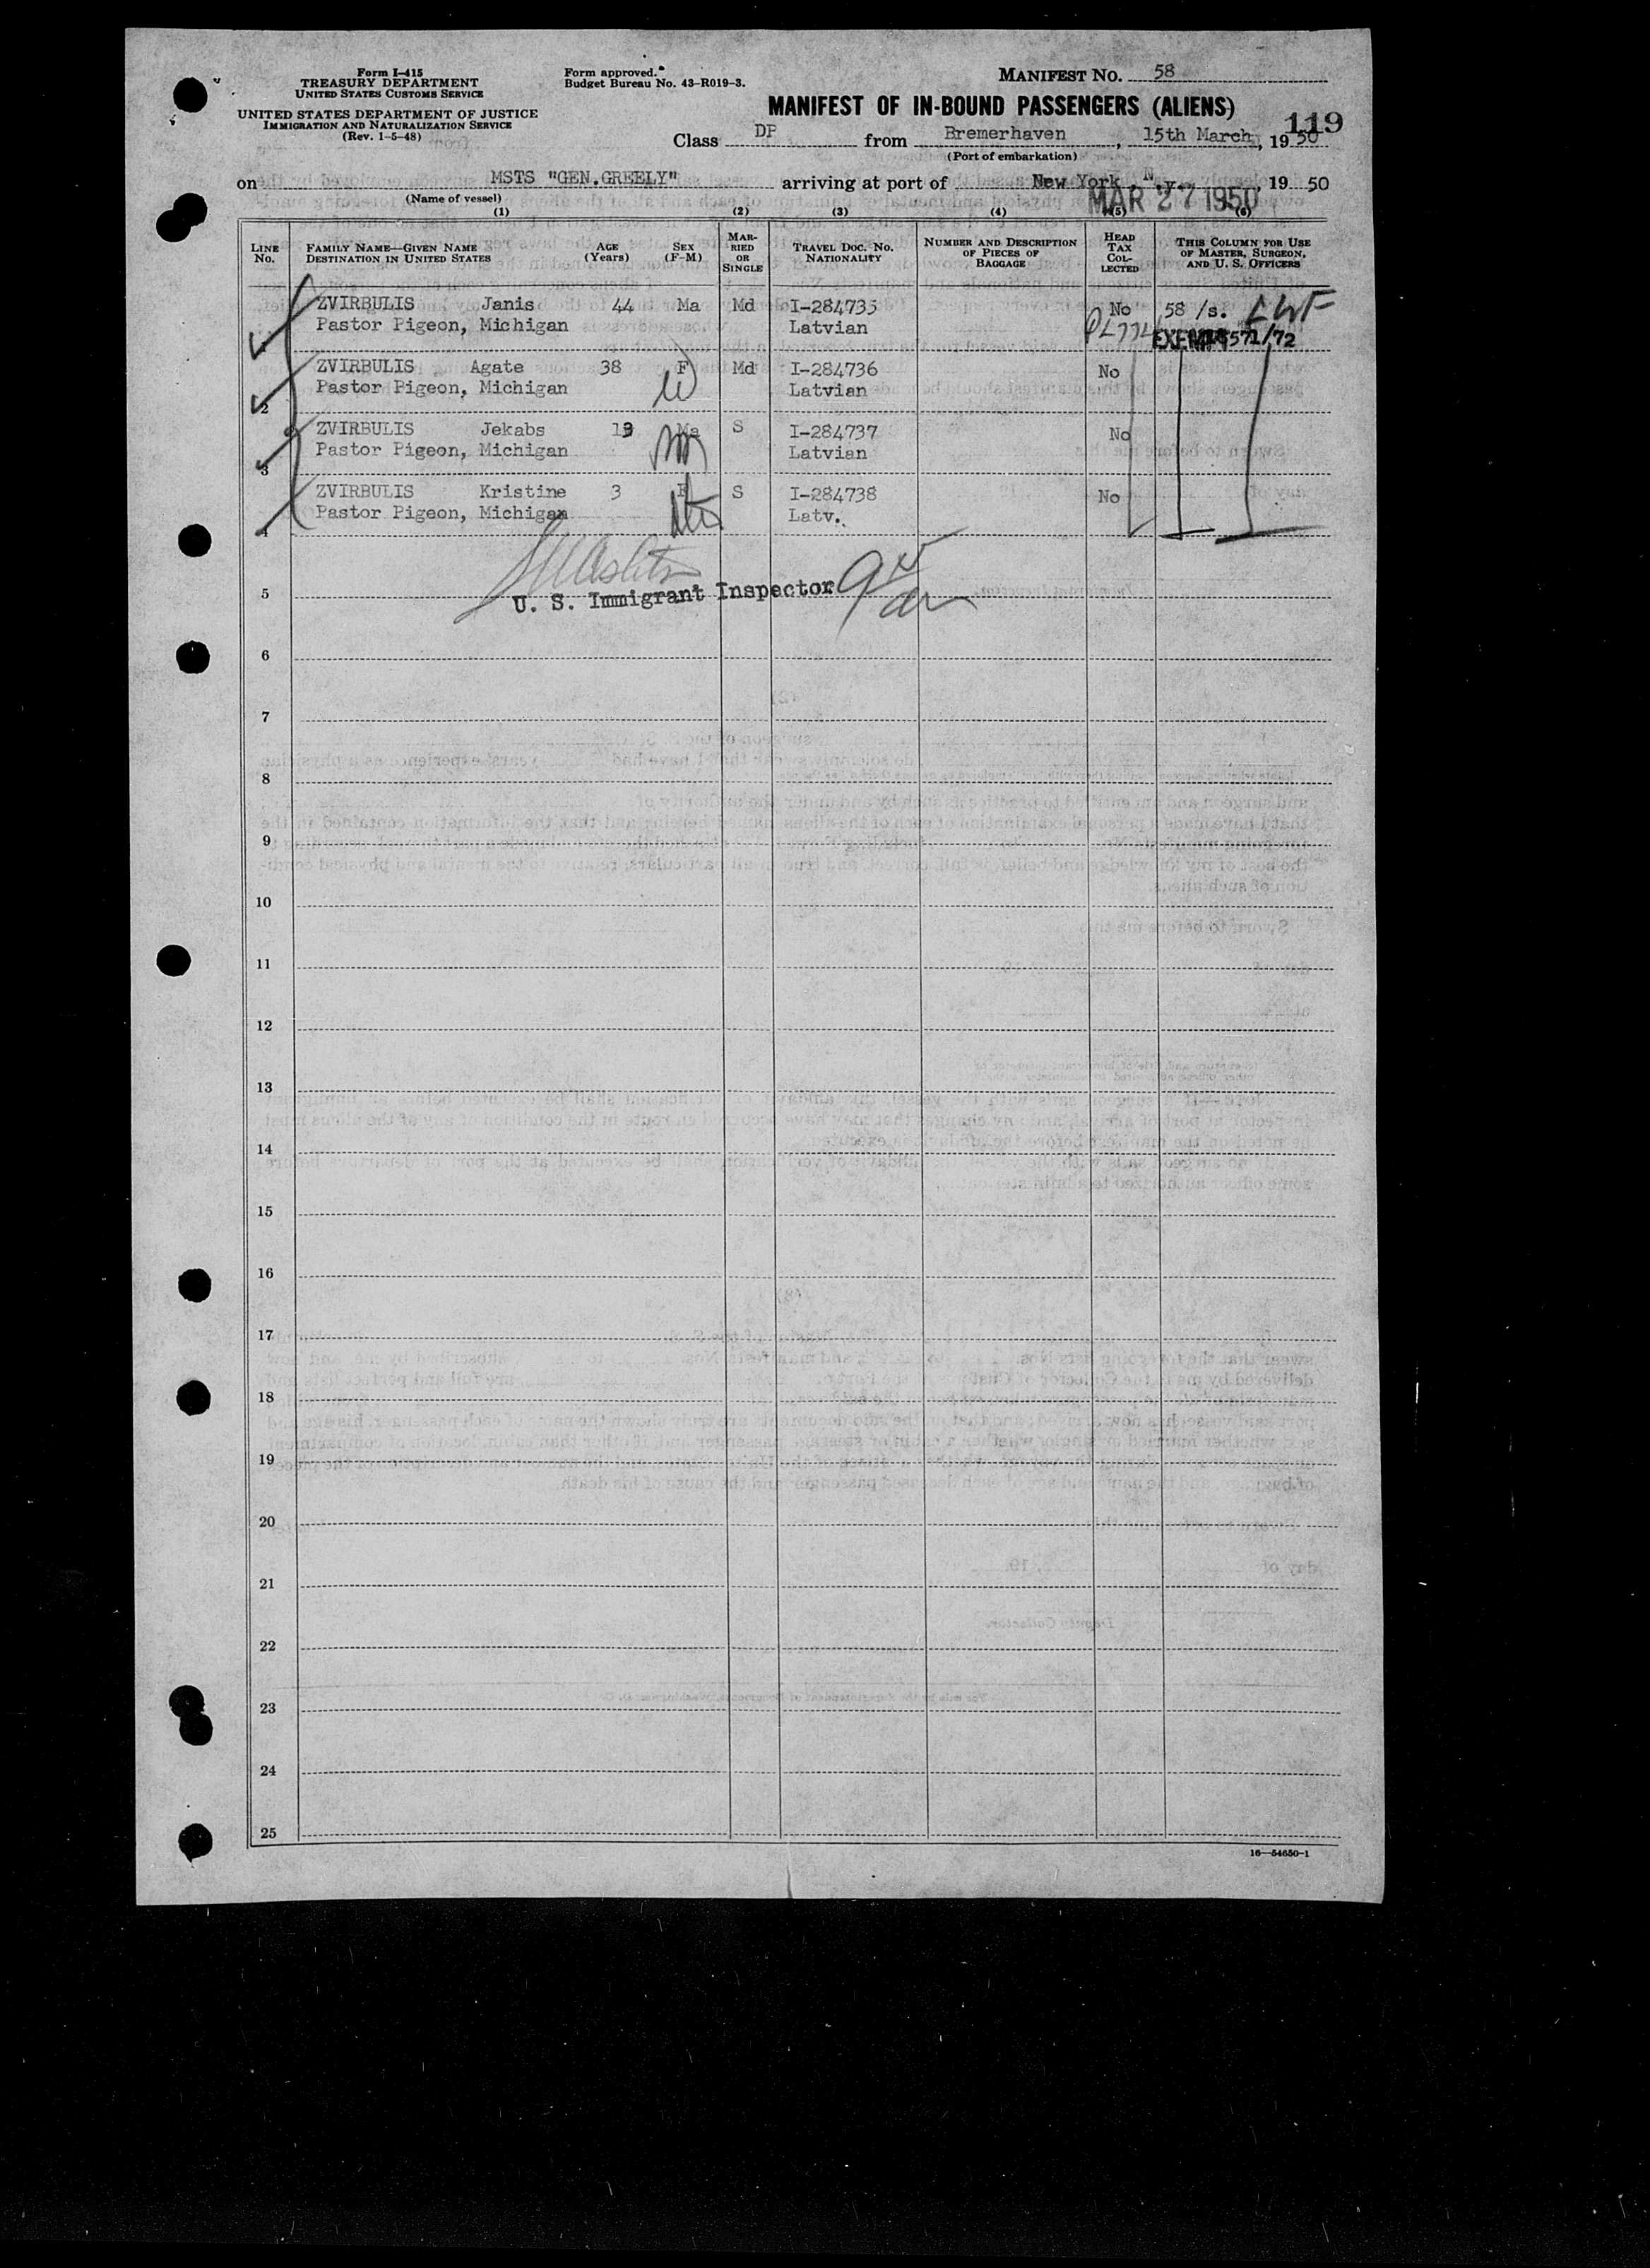 Form I-415
TREASURY DEPARTMENT
UNITED STATES CUSTOMS SERVICE
UNITED STATES DEPARTMENT OF JUSTICE
IMMIGRATION AND NATURALIZATION SERVICE
(Rev. 1-5-48)
Form approved.
Budget Bureau No. 43-R019-3.
MANIFEST No. 58
MANIFEST OF IN-BOUND PASSENGERS (ALIENS)
119
Class DP from Bremerhaven, 15th March, 1950
(Port of embarkation)
on MSTS "GEN.GREELY" arriving at port of New York, N.Y., 1950
(Name of vessel)
MAR 27 1950
(1) (2) (3) (4) (5) (6)
LINE No. FAMILY NAME—GIVEN NAME DESTINATION IN UNITED STATES AGE (Years) SEX (F-M) MARRIED OR SINGLE TRAVEL DOC. NO. NATIONALITY NUMBER AND DESCRIPTION OF PIECES OF BAGGAGE HEAD TAX COLLECTED THIS COLUMN FOR USE OF MASTER, SURGEON, AND U. S. OFFICERS
ZVIRBULIS Janis 44 Ma Md I-284735 No 58 /s.
1 Pastor Pigeon, Michigan Latvian EXEMPT 571/72
ZVIRBULIS Agate 38 F Md I-284736 No
2 Pastor Pigeon, Michigan Latvian
ZVIRBULIS Jekabs 13 Ma S I-284737 No
3 Pastor Pigeon, Michigan Latvian
ZVIRBULIS Kristine 3 F S I-284738 No
4 Pastor Pigeon, Michigan Latv.
5 U. S. Immigrant Inspector
6
7
8
9
10
11
12
13
14
15
16
17
18
19
20
21
22
23
24
25
16—54650-1